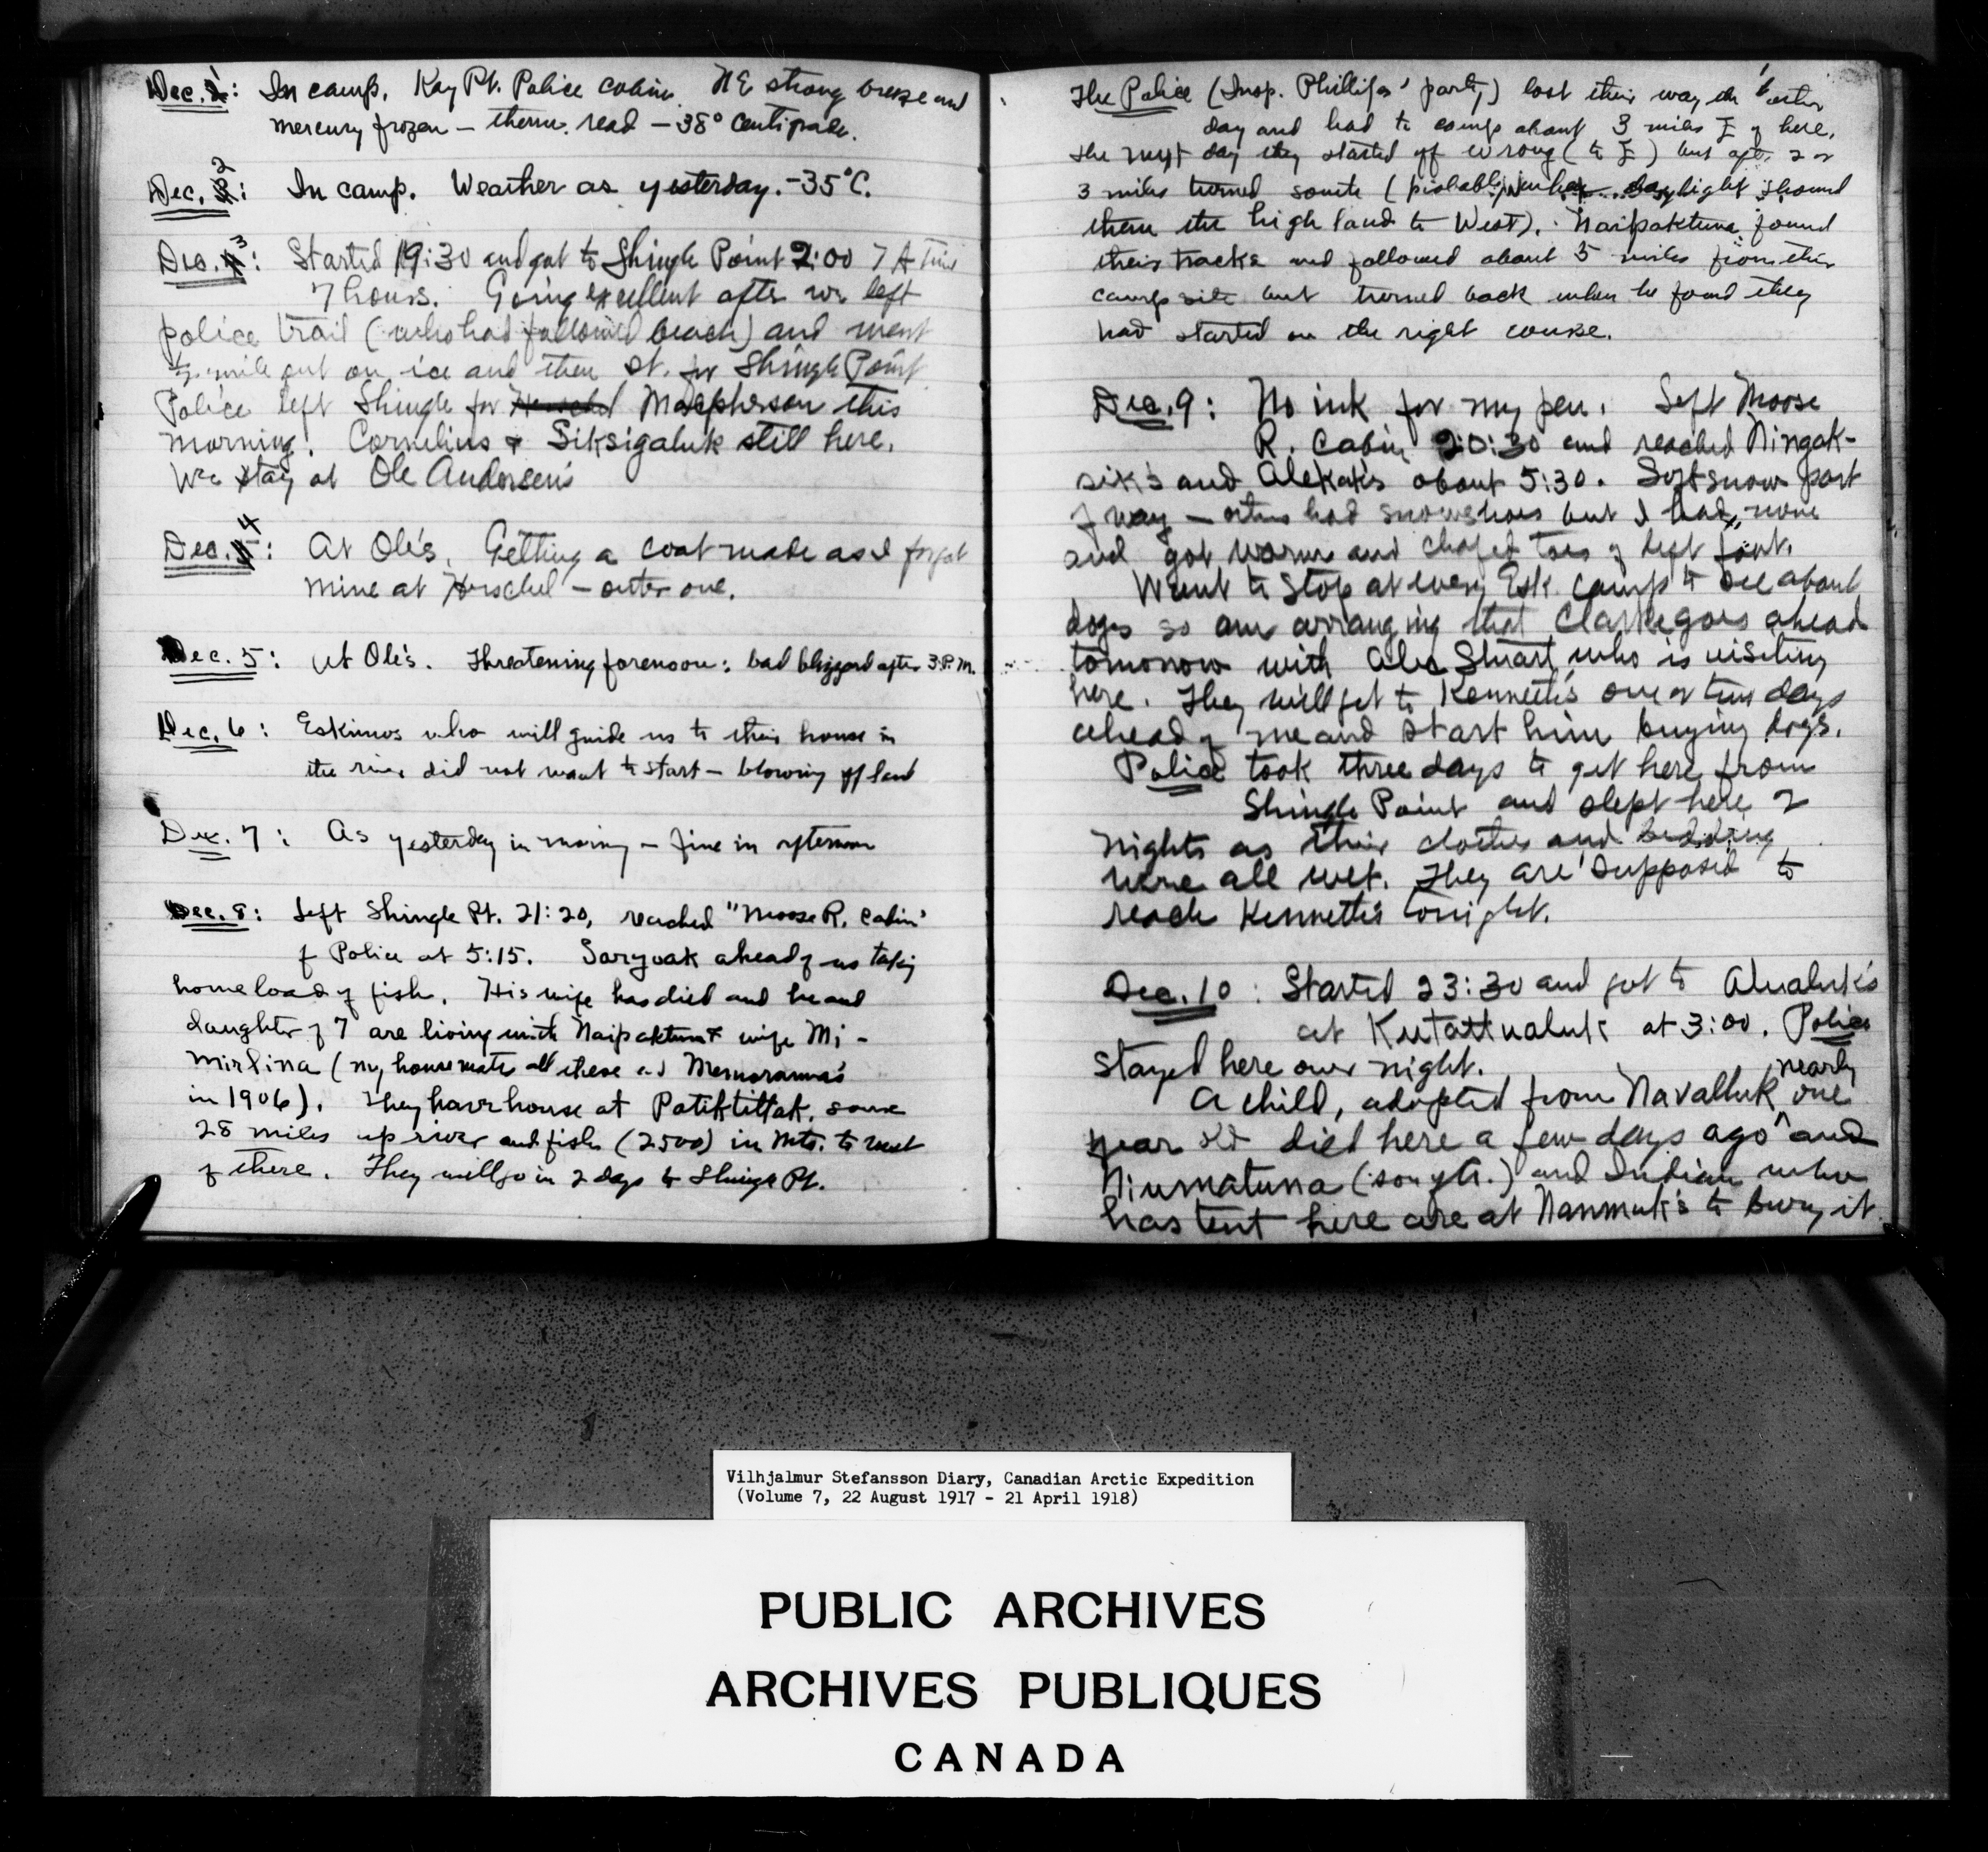 Dec. 1: In camp. Kay Pt. Police cabin. NE strong breeze and
mercury frozen — therm. read — 38° Centigrade.
Dec. 2: In camp. Weather as yesterday. -35°C.
Dec. 3: Started 19:30 and got to Shingle Point 2:00
7 hours. Going excellent after we left
police trail (who had followed beach) and went
mile out on ice and then st. for Shingle Point
Police left Shingle for Herschel Macpherson this
morning. Cornelius & Siksigaluk still here.
We stay at Ole Andersen's
Dec. 4: At Ole's. Getting a coat made as I forgot
mine at Herschel — outer one.
Dec. 5: At Ole's. Threatening forenoon; bad blizzard after 3 P.M.
Dec. 6: Eskimos who will guide us to their house in
the river did not want to start — blowing off land
Dec. 7: As yesterday in morning — fine in afternoon
Dec. 8: Left Shingle Pt. 21:20, reached "Moose R. Cabin"
of Police at 5:15. Saryoak ahead of us taking
home load of fish. His wife has died and he and
daughter of 7 are living with Naipaktuna & wife Mi-
mirlina (my housemates all these at Memoranna's
in 1906). They have house at Patiktittak, some
28 miles up river and fish (2500) in Mts. to west
of there. They will go in 2 days to Shingle Pt.
The Police (Insp. Phillips' party) lost their way the other
day and had to camp about 3 miles E of here.
The next day they started off wrong (to E) but after 2 or
3 miles turned south (probably when daylight showed
them the high land to West). Naipaktuna found
their tracks and followed about 5 miles from their
camp site but turned back when he found they
had started on the right course.
Dec. 9: No ink for my pen. Left Moose
R. Cabin 20:30 and reached Ningak-
sik's and Alekak's about 5:30. Soft snow part
of way — others had snowshoes but I had none
and got warm and chafed toes of left foot.
Want to stop at every Esk. camp to see about
dogs so am arranging that Clarke goes ahead
tomorrow with Alec Stuart who is visiting
here. They will get to Kenneth's one or two days
ahead of me and start him buying dogs.
Police took three days to get here from
Shingle Point and slept here 2
nights as their clothes and bedding
were all wet. They are supposed to
reach Kenneth's tonight.
Dec. 10: Started 23:30 and got to Alualuk's
at Kutattualuk at 3:00. Police
stayed here over night.
A child, adopted from Navalluk, nearly one
year old died here a few days ago and
Niumatuna (song tr.) and Indian who
has tent here are at Nanmuk's to bury it.
Vilhjalmur Stefansson Diary, Canadian Arctic Expedition
(Volume 7, 22 August 1917 - 21 April 1918)
PUBLIC ARCHIVES
ARCHIVES PUBLIQUES
CANADA